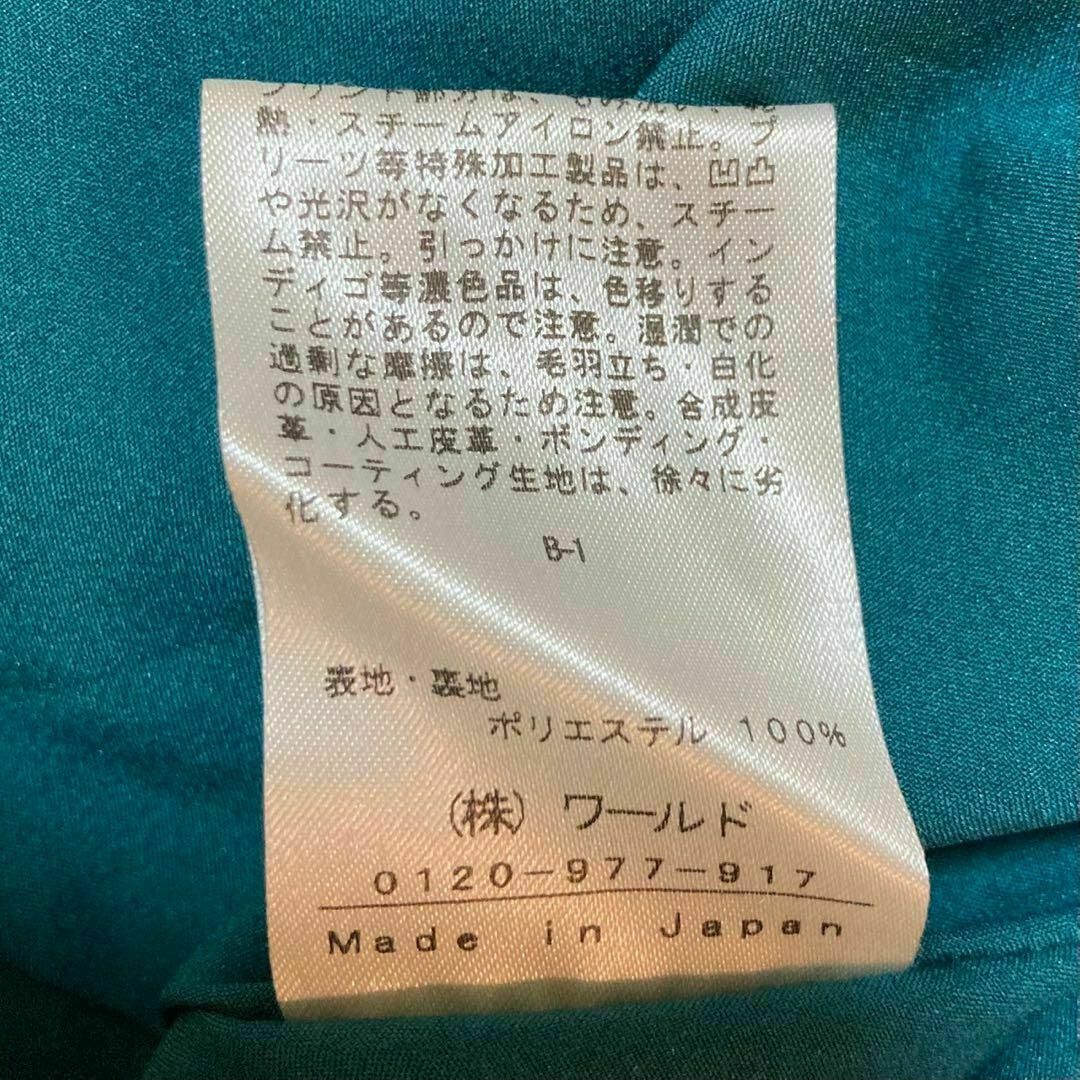 プリント部分は、もみ洗い、
熱・スチームアイロン禁止。プ
リーツ等特殊加工製品は、凹凸
や光沢がなくなるため、スチー
ム禁止。引っかけに注意。イン
ディゴ等濃色品は、色移りする
ことがあるので注意。湿潤での
過剰な摩擦は、毛羽立ち・白化
の原因となるため注意。合成皮
革・人工皮革・ボンディング・
コーティング生地は、徐々に劣
化する。
B-1
表地・裏地
ポリエステル 100%
(株) ワールド
0120-977-917
Made in Japan